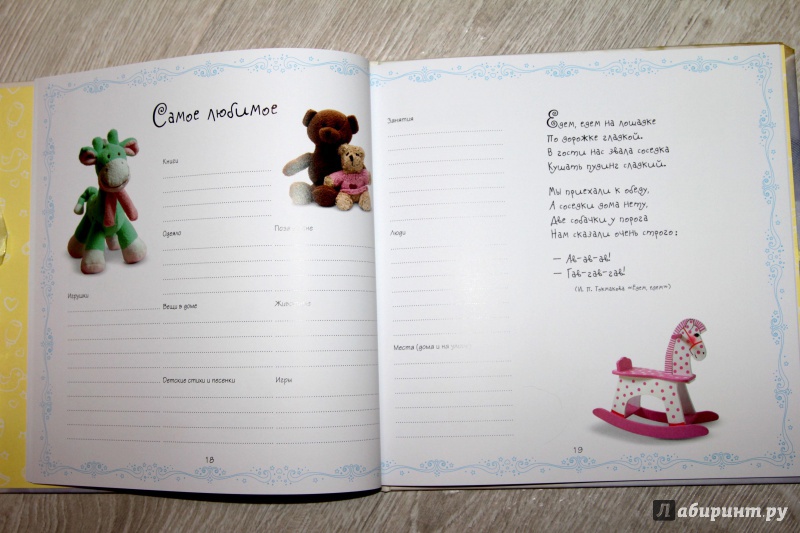 Самое любимое
Книги
Одеяло
Игрушки
Вещи в доме
Детские стихи и песенки
Игры
18
Занятия
Люди
Места (дома и на
Едем, едем на лошадке
По дорожке гладкой.
В гости нас звала соседка
Кушать пудинг сладкий.
Мы приехали к обеду,
А соседки дома нету,
Две собачки у порога
Нам сказали очень строго:
— Ав-ав-ав!
— Гав-гав-гав!
(И. П. Токмакова «Едем, едем»)
19
Лабиринт.ру